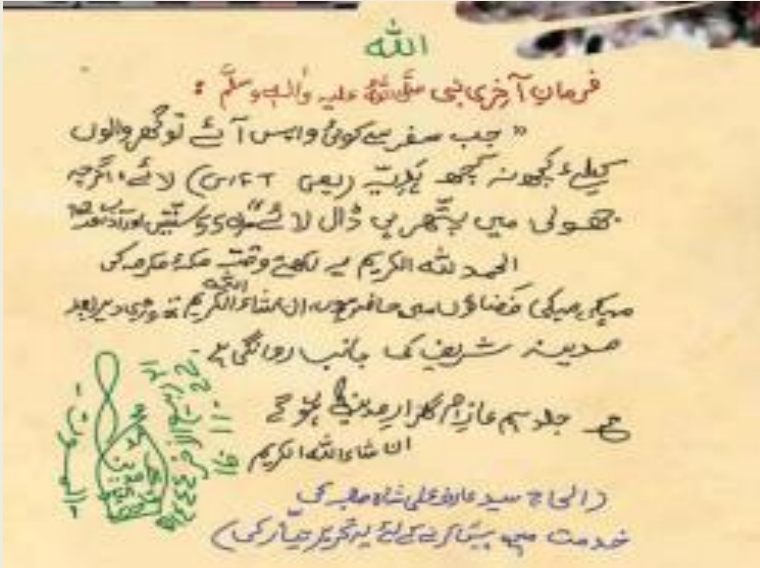 اللہ
فرمانِ آخری نبی صلَّی اللہُ علیہ واٰلہٖ وسلَّم :
"جب سفر سے کوئی واپس آئے تو گھر والوں
کیلئے کچھ نہ کچھ ہدیہ (یعنی GIFT) لائے، اگرچہ
جھولی میں پتھر ہی ڈال لائے"
الحمد للہ الکریم یہ لکھتے وقت مکۂ مکرمہ کی
مہکی مہکی فضاؤں میں حاضر ہوں، ان شاء اللہ الکریم تھوڑی دیر بعد
مدینہ شریف کی جانب روانگی ہے۔
جلد ہم عازمِ گلزارِ مدینہ ہونگے
ان شاء اللہ الکریم
(الحاج سید عارف علی شاہ صاحب کی
خدمت میں پیش کرنے کے لئے یہ تحریر تیار کی)